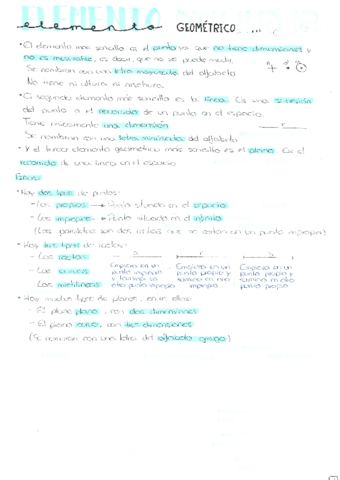 ELEMENTO
elemento GEOMÉTRICO ...
• El elemento más sencillo es el punto ya que no tiene dimensiones y
no es mesurable, es decir, que no se puede medir.
Se nombran con una letra mayúscula del alfabeto.
No tiene ni altura ni anchura.
• El segundo elemento más sencillo es la línea. Es una sucesión
del punto o el recorrido de un punto en el espacio.
Tiene únicamente una dimensión.
Se nombran con una letra minúscula del alfabeto.
• Y el tercer elemento geométrico más sencillo es el plano. Es el
recorrido de una línea en el espacio.
• Hay dos tipos de puntos:
- Los propios → Punto situado en el espacio
- Los impropios → Punto situado en el infinito
(Las paralelas son dos rectas que se cortan en un punto impropio)
• Hay tres tipos de rectas:
- Las rectas:
- Las
- Las
Empieza en un punto impropio y termina en otro punto impropio
Empieza en un punto propio y termina en uno impropio
Empieza en un punto propio y termina en otro punto propio
• Hay muchos tipos de planos, entre ellos:
- El plano plano, con dos dimensiones
- El plano curvo, con tres dimensiones
(Se nombran con una letra del alfabeto griego)